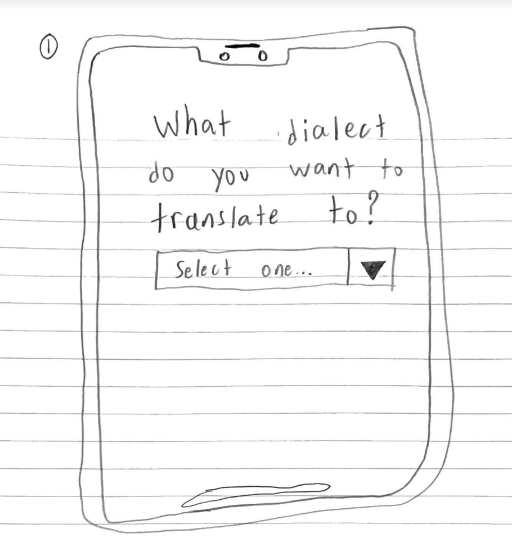 ①
What dialect
do you want to
translate to?
Select one...